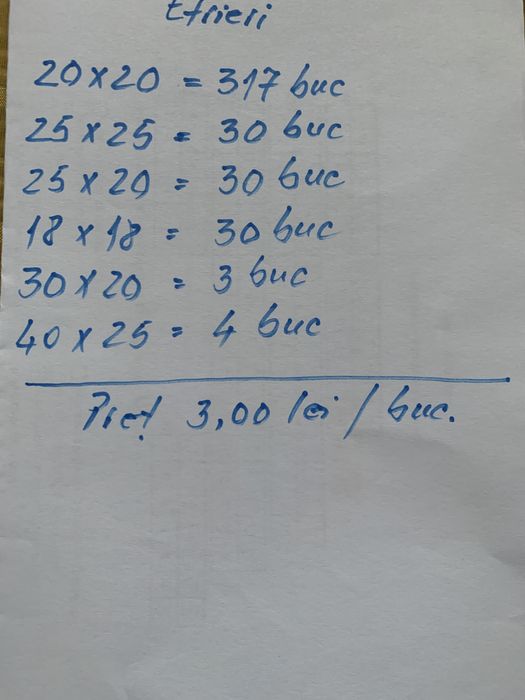 Etrieri
20x20 = 317 buc
25x25 = 30 buc
25x20 = 30 buc
18x18 = 30 buc
30x20 = 3 buc
40x25 = 4 buc
Preț 3,00 lei / buc.